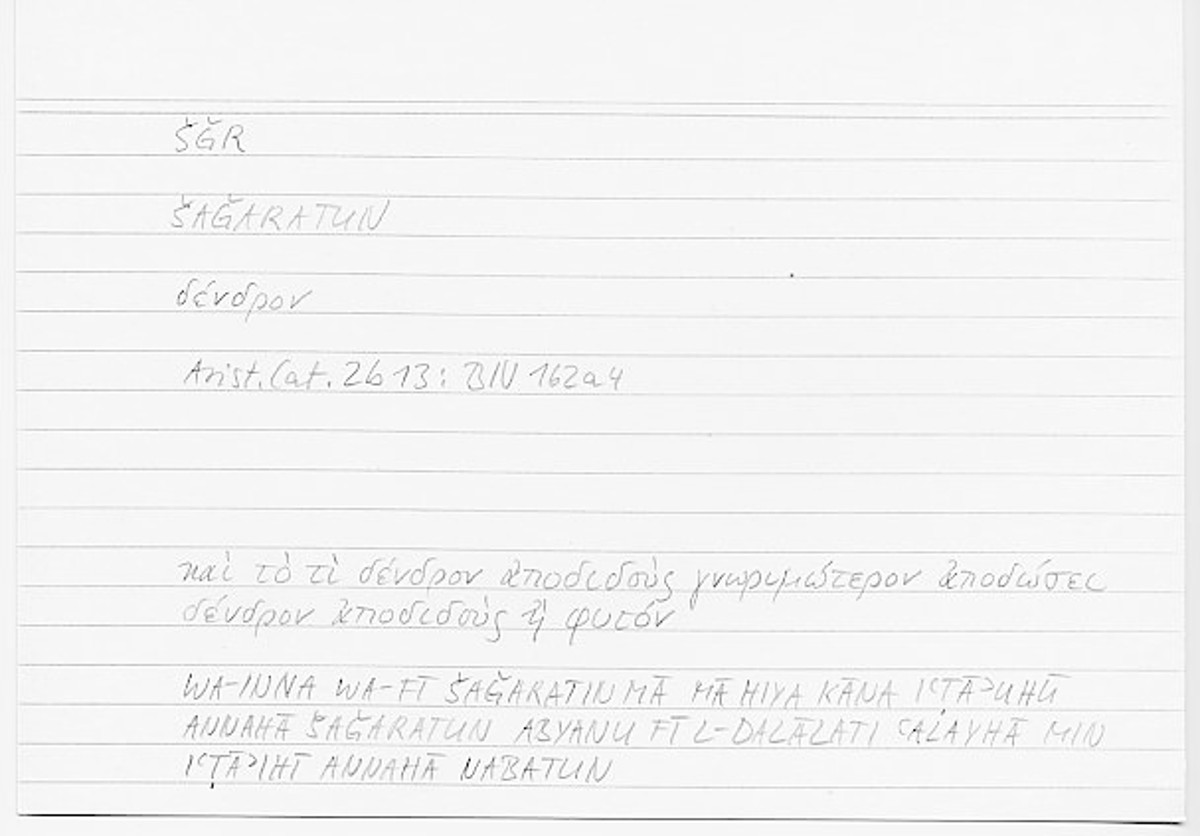 ŠǦR
ŠAǦARATUN
δένδρον
Arist. Cat. 2b13: BIV 162a4
καὶ τὸ τὶ δένδρον ἀποδιδοὺς γνωριμώτερον ἀποδώσει
δένδρον ἀποδιδοὺς ἢ φυτόν
WA-INNA WA-FĪ ŠAǦARATIN MĀ MĀ HIYA KĀNA IʿṬĀʾUHŪ
ANNAHĀ ŠAǦARATUN ABYANU FĪ L-DALĀLATI ʿALAYHĀ MIN
IʿṬĀʾIHĪ ANNAHĀ NABATUN